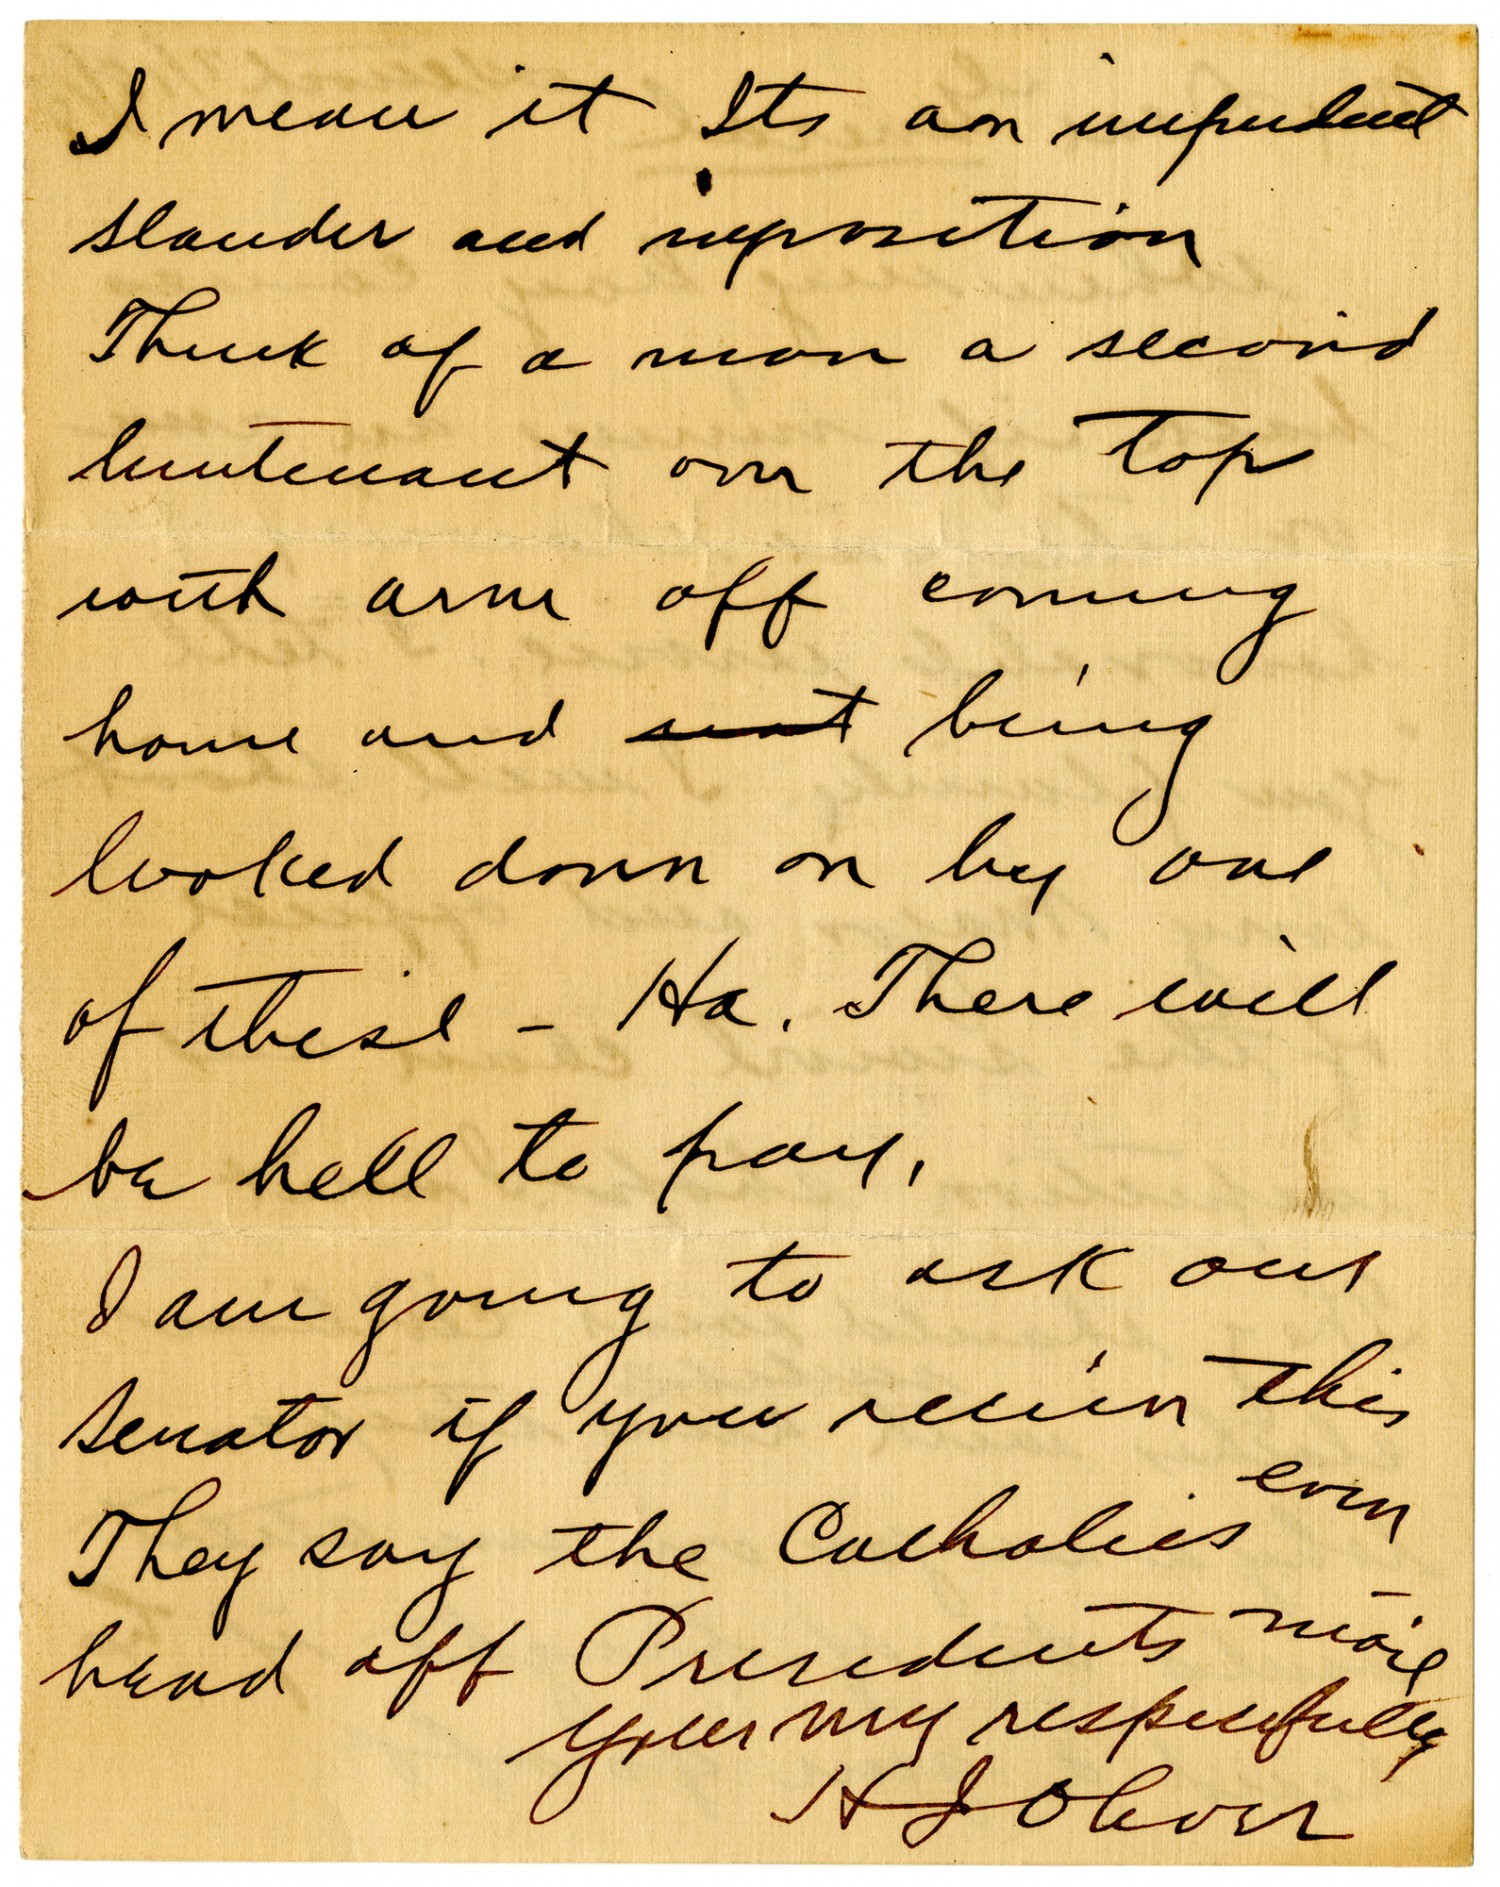 I mean it Its an impudent
slander and imposition
Think of a man a second
lieutenant over the top
with arm off coming
home and being
looked down on by one
of these - Ha. There will
be hell to pay.
I am going to ask our
senator if you receive this
They say the Catholics even
head off Presidents
Yours respectfully
H J Oliver